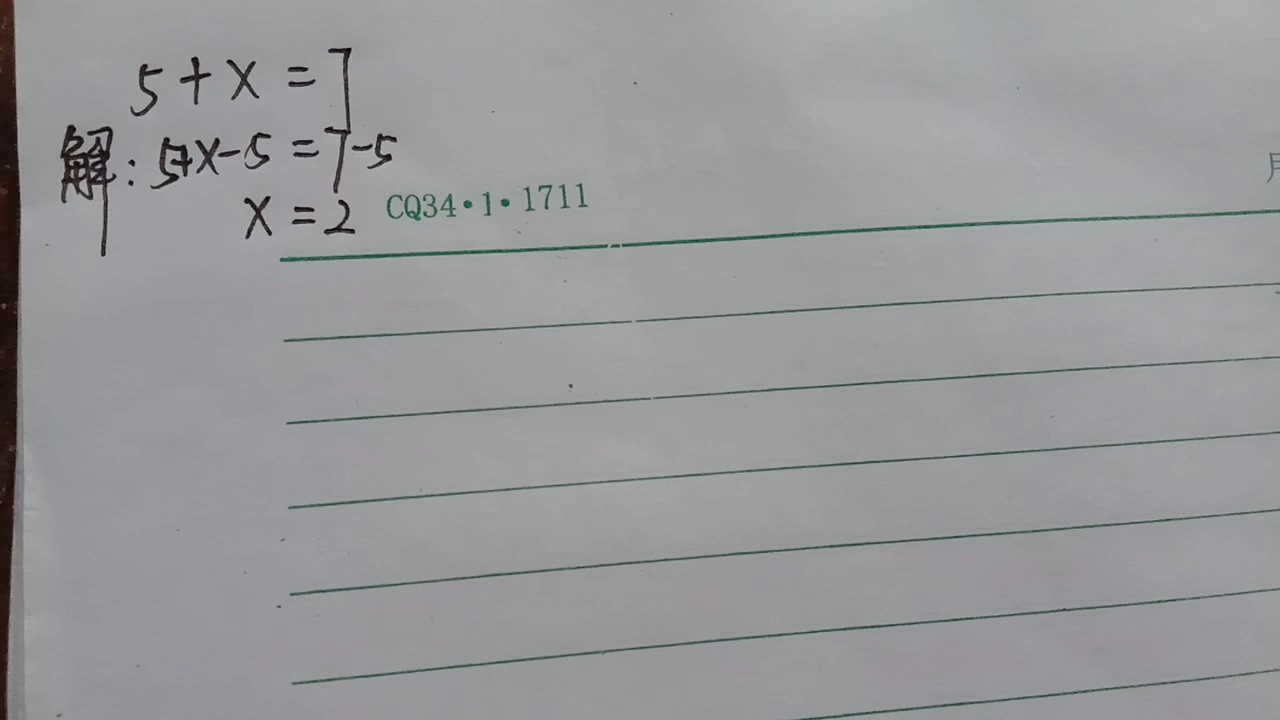 5+x=7
解:5+x-5=7-5
x=2
CQ34·1·1711